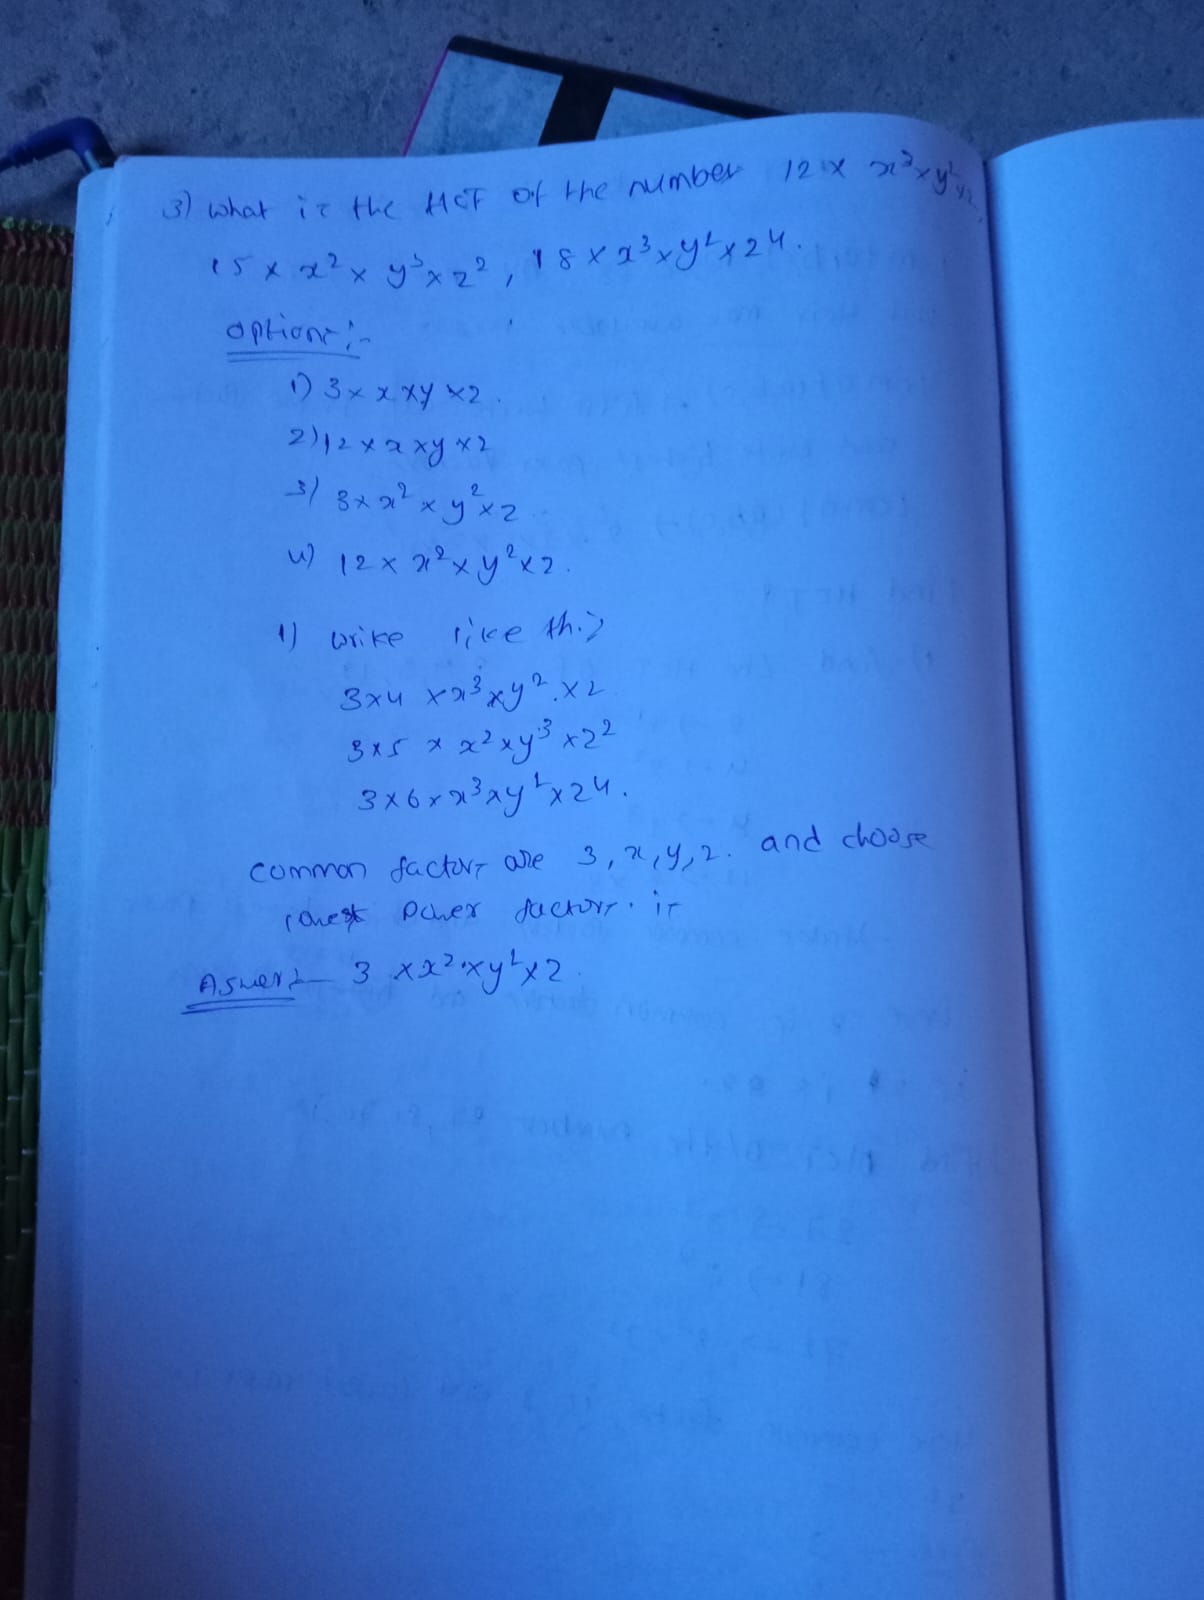 3) What is the HCF of the number 12 x x³ x y² x z,
15 x x² x y³ x z², 18 x x³ x y² x z4.
Options:-
1) 3 x x x y x z.
2) 12 x x x y x z
3) 3 x x² x y² x z
4) 12 x x² x y² x z.
1) write like this
3x4 x x³ x y² x z
3x5 x x² x y³ x z²
3x6 x x³ x y² x z4.
common factors are 3, x, y, z. and choose
lowest power factors. is
Aswer:- 3 x x² x y² x z.